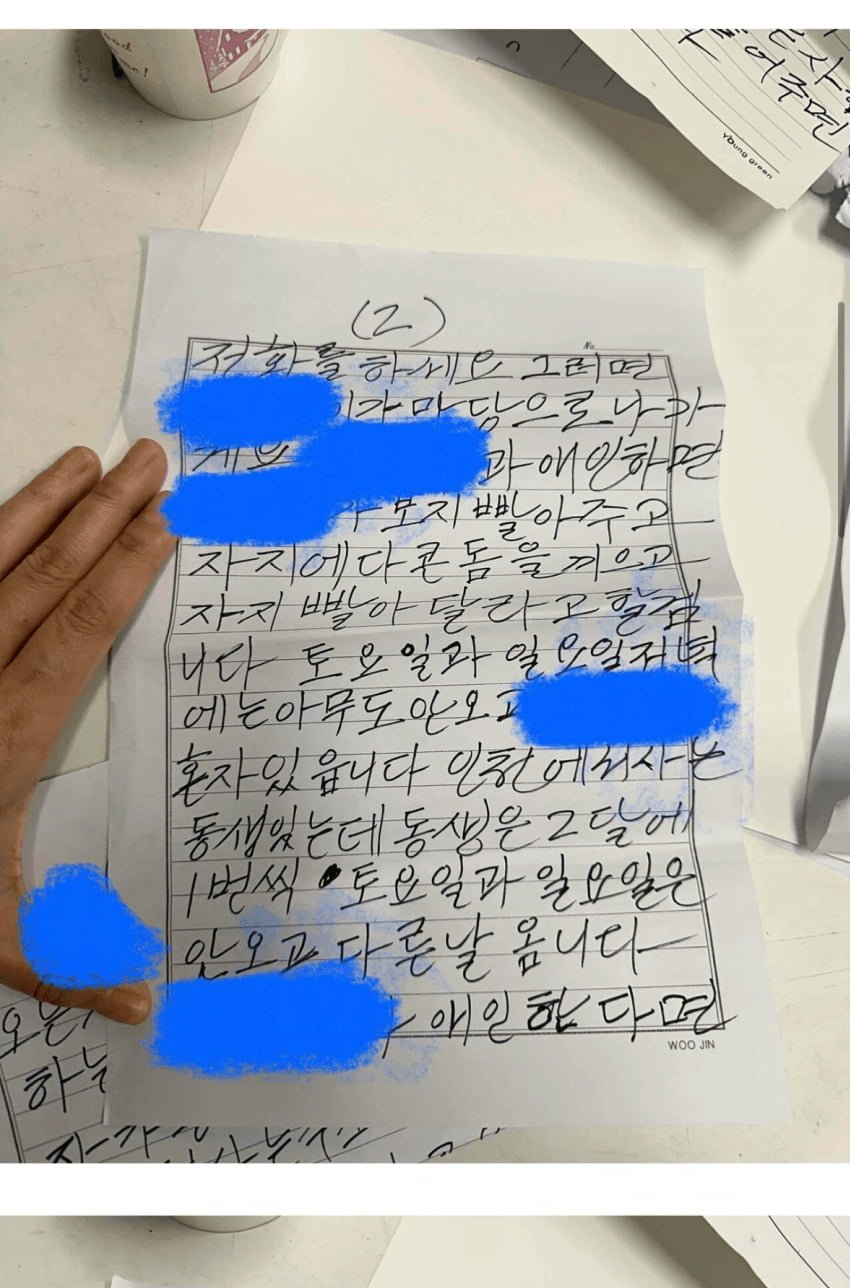 young green
(2)
No.
저화를 하세요 그러면
이가 마담으로 나가
과 애인하면
보지 빨아주고
자지에다 콘돔을 끼으고
자지 빨아 달라고 할겁
니다 토요일과 일요일저녁
에는아무도안오고
혼자있읍니다 인천에서사는
동생있는데 동생은 2달에
1번씩 토요일과 일요일은
안오고 다른날 옵니다
애인한다면
WOO JIN
오는
하는